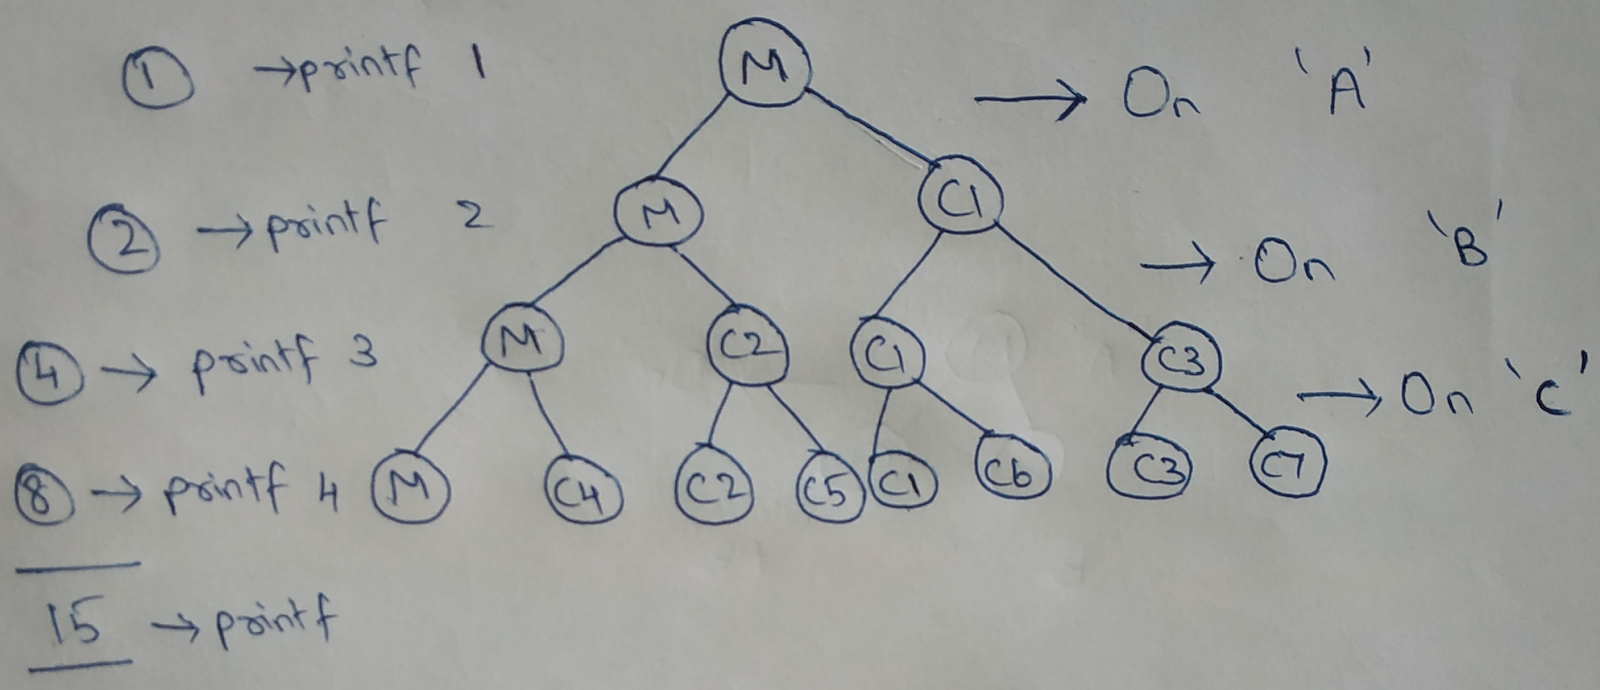 ① → printf 1 M → On 'A'
② → printf 2 M C1 → On 'B'
④ → printf 3 M C2 C1 C3 → On 'C'
⑧ → printf 4 M C4 C2 C5 C1 C6 C3 C7
15 → printf